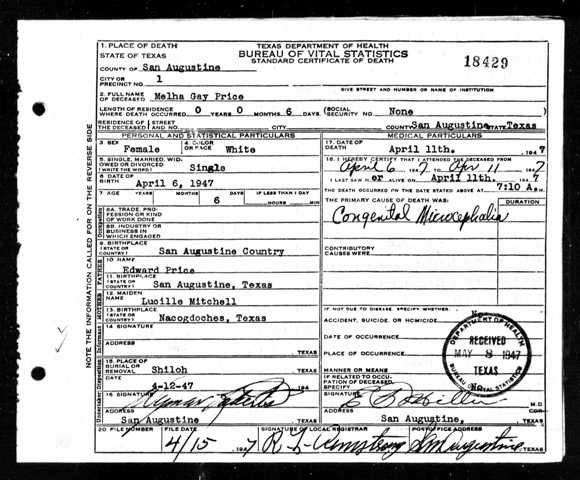 TEXAS DEPARTMENT OF HEALTH
BUREAU OF VITAL STATISTICS
STANDARD CERTIFICATE OF DEATH
18429
1. PLACE OF DEATH
STATE OF TEXAS
COUNTY OF San Augustine
CITY OR PRECINCT NO. 1
GIVE STREET AND NUMBER OR NAME OF INSTITUTION
2. FULL NAME OF DECEASED Melha Gay Price
LENGTH OF RESIDENCE WHERE DEATH OCCURRED 0 YEARS 0 MONTHS 6 DAYS (SOCIAL SECURITY NO. None
RESIDENCE OF THE DECEASED STREET AND NO. CITY COUNTY San Augustine STATE Texas
PERSONAL AND STATISTICAL PARTICULARS
3. SEX Female
4. COLOR OR RACE White
5. SINGLE, MARRIED, WID- OWED OR DIVORCED (WRITE THE WORD) Single
6. DATE OF BIRTH April 6, 1947
7. AGE YEARS MONTHS DAYS 6 IF LESS THAN 1 DAY HOURS MIN
8A. TRADE, PRO- FESSION OR KIND OF WORK DONE
8B. INDUSTRY OR BUSINESS IN WHICH ENGAGED
9. BIRTHPLACE (STATE OR COUNTRY) San Augustine Country
FATHER
10. NAME Edward Price
11. BIRTHPLACE (STATE OR COUNTRY) San Augustine, Texas
MOTHER
12. MAIDEN NAME Lucille Mitchell
13. BIRTHPLACE (STATE OR COUNTRY) Nacogdoches, Texas
14. SIGNATURE
ADDRESS TEXAS
15. PLACE OF BURIAL OR REMOVAL Shiloh TEXAS
DATE 4-12-47 194
16. SIGNATURE
ADDRESS San Augustine TEXAS
MEDICAL PARTICULARS
17. DATE OF DEATH April 11th. 1947
18. I HEREBY CERTIFY THAT I ATTENDED THE DECEASED FROM
April 6 1947 TO Apr 11 1947
I LAST SAW H er ALIVE ON April 11th. 1947
THE DEATH OCCURRED ON THE DATE STATED ABOVE AT 7:10 A M.
THE PRIMARY CAUSE OF DEATH WAS: DURATION
Congenital Microcephalia
CONTRIBUTORY CAUSES WERE:
IF NOT DUE TO DISEASE, SPECIFY WHETHER:
ACCIDENT, SUICIDE, OR HOMICIDE No
DATE OF OCCURRENCE
PLACE OF OCCURRENCE
MANNER OR MEANS
IF RELATED TO OCCU- PATION OF DECEASED, SPECIFY No
SIGNATURE M.D.
ADDRESS San Augustine, TEXAS
DEPARTMENT OF HEALTH
RECEIVED
MAY 8 1947
TEXAS
BUREAU OF VITAL STATISTICS
20. FILE NUMBER
FILE DATE 4/15 1947
SIGNATURE OF LOCAL REGISTRAR R L Armstrong
ADDRESS San Augustine, TEXAS
NOTE THE INFORMATION CALLED FOR ON THE REVERSE SIDE